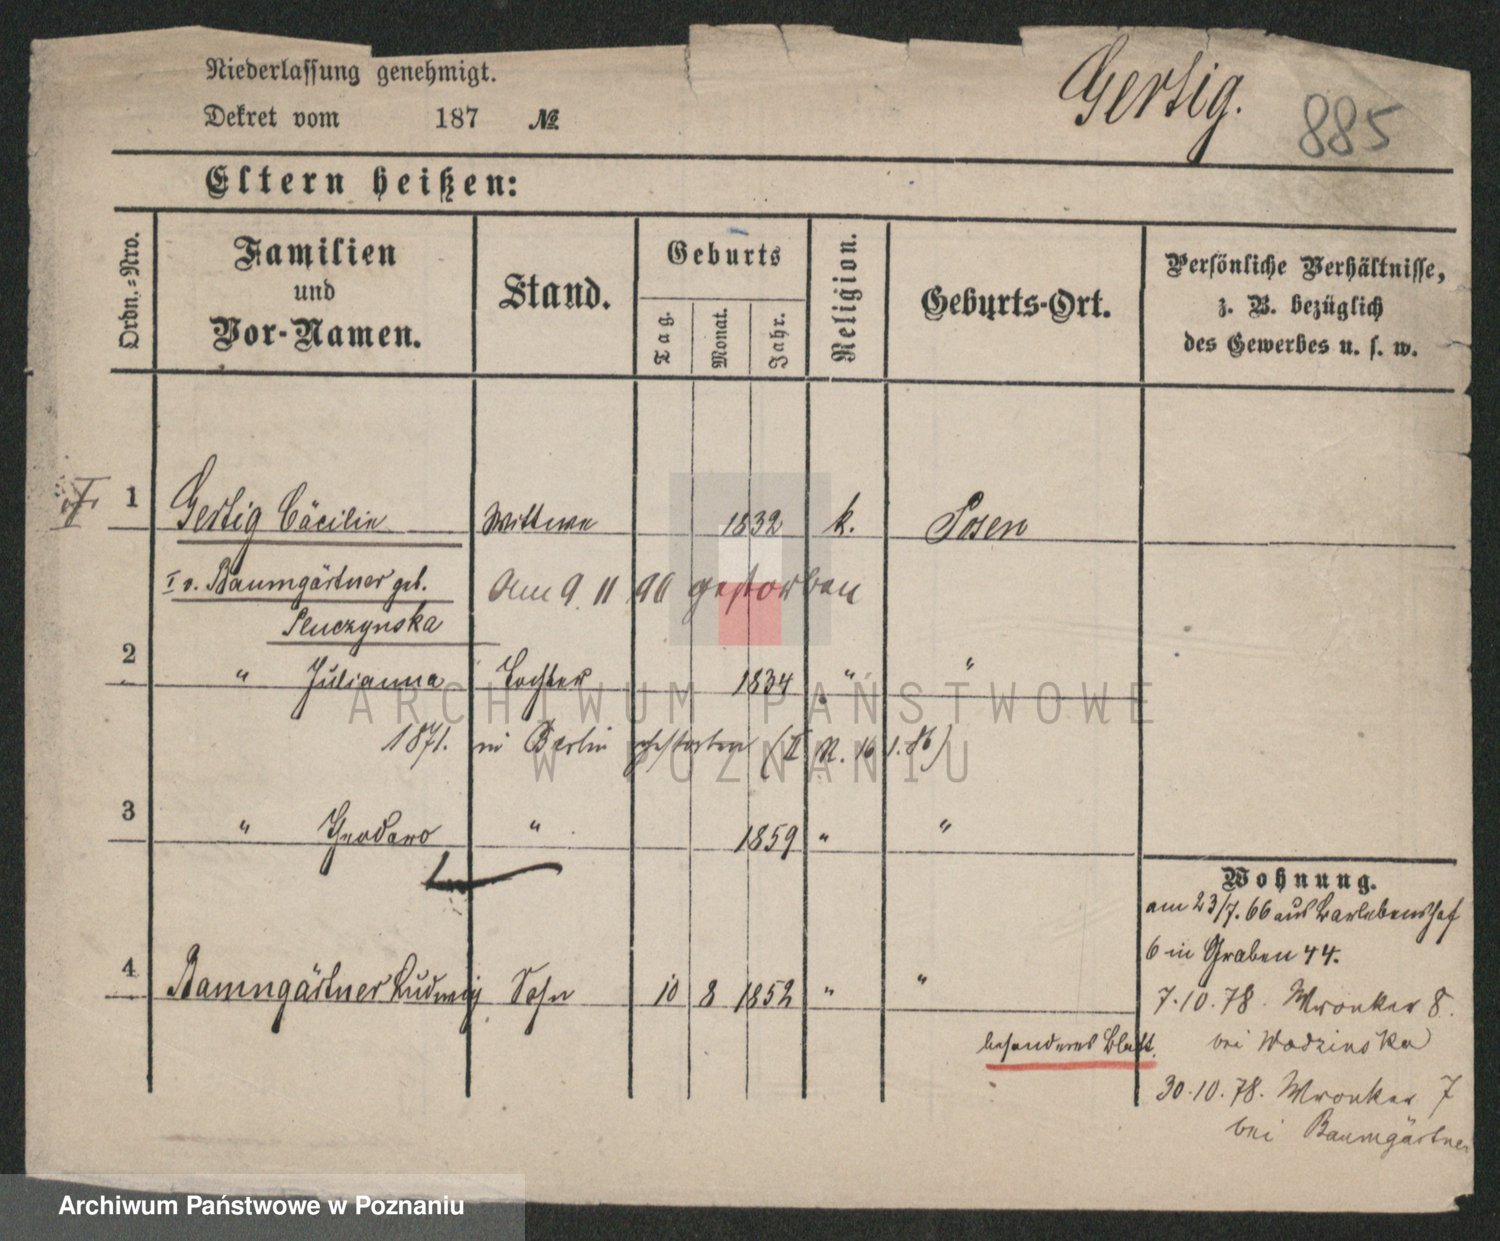 Niederlassung genehmigt.
Gersig.
885
Dekret vom 187 №
Eltern heißen:
Ordn.-Nro.
Familien und Vor-Namen.
Stand.
Geburts
Tag. Monat. Jahr.
Religion.
Geburts-Ort.
Persönliche Verhältnisse, z. B. bezüglich des Gewerbes u. s. w.
1 Gersig Cäcilie Wittwe 1832 k. Posen
I v. Baumgärtner geb. Am 9 11 90 gestorben
2 " Julianna Tochter 1834 " "
1871. in Berlin gestorben
3 " 1859 " "
Wohnung.
am 23/7. 66 aus
6 in Graben 44.
4 Baumgärtner Ludwig Sohn 10 8 1852 " "
7.10.78. Wronker 8.
besonderes Blatt.
bei Wodzinska
30.10.78. Wronker 7
bei Baumgärtner
ARCHIWUM PAŃSTWOWE
W POZNANIU
Archiwum Państwowe w Poznaniu